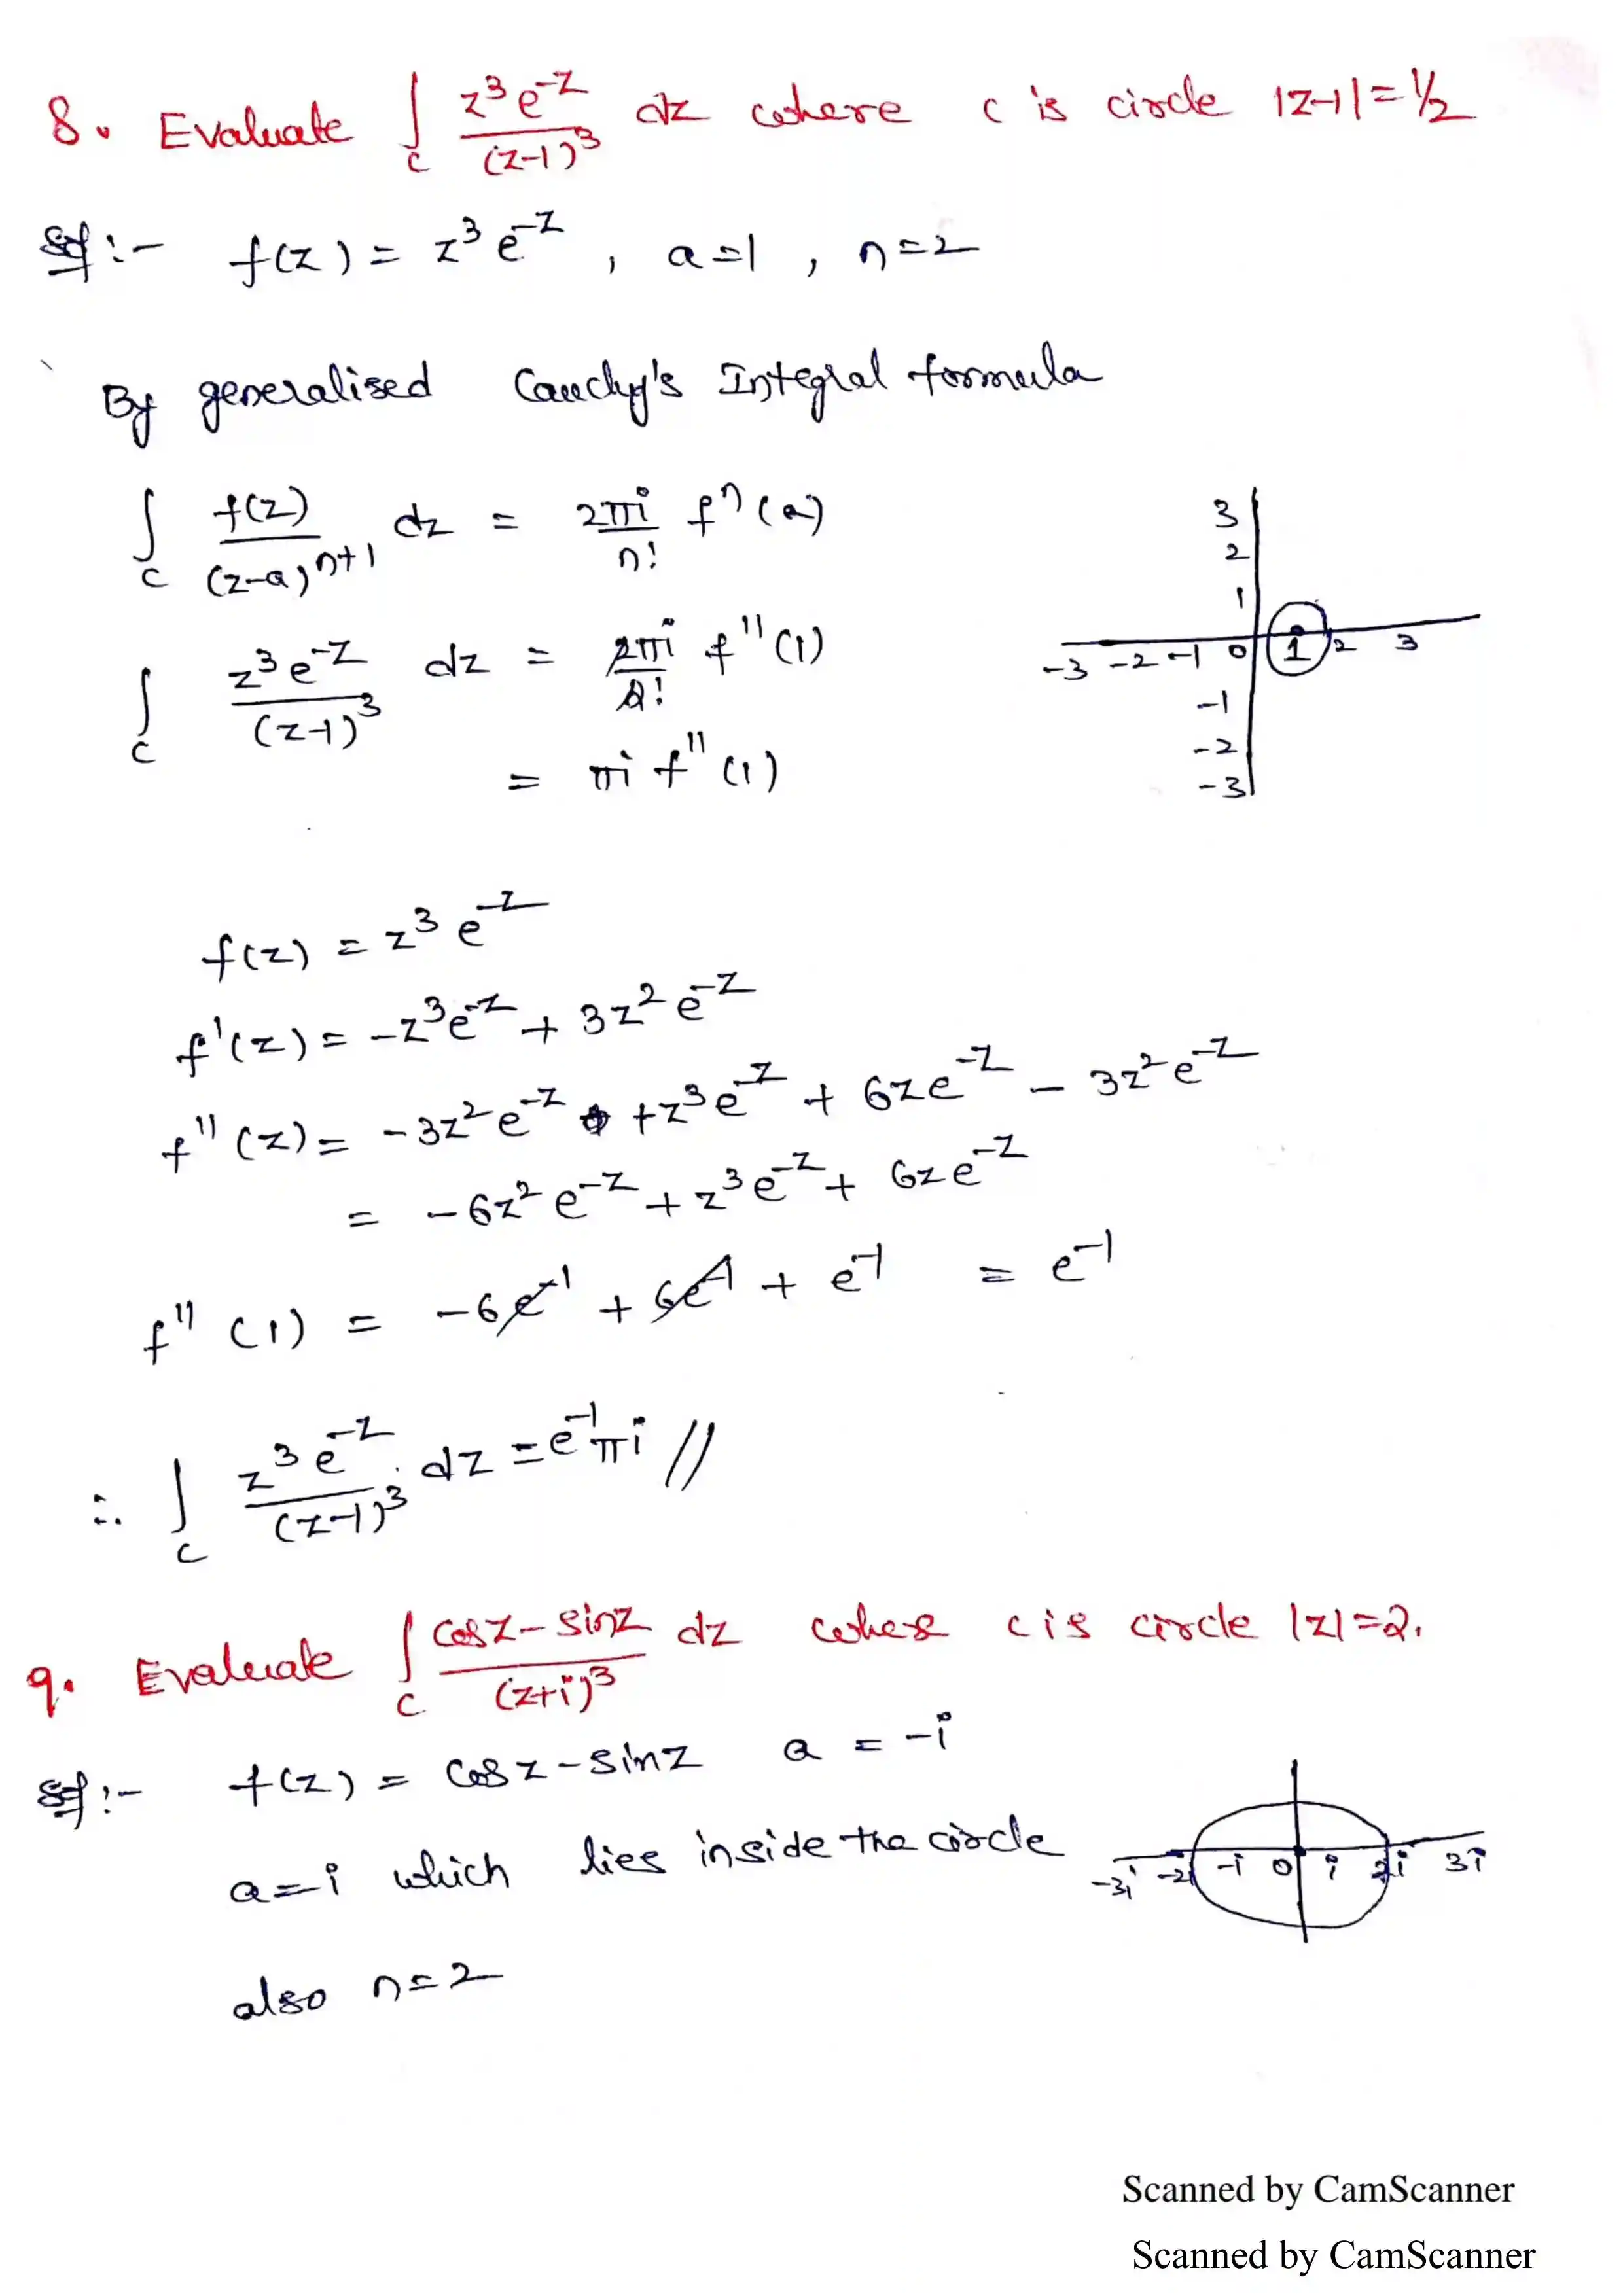 8. Evaluate ∫_C z³e^-z/(z-1)³ dz where c is circle |z-1|=1/2
Sol:- f(z) = z³e^-z, a=1, n=2
By generalised Cauchy's Integral formula
∫_C f(z)/(z-a)^n+1 dz = 2πi/n! f^n(a)
∫_C z³e^-z/(z-1)³ dz = 2πi/2! f''(1)
= πi f''(1)
3
2
1
-3 -2 -1 0 1 2 3
-1
-2
-3
f(z) = z³e^-z
f'(z) = -z³e^-z + 3z²e^-z
f''(z) = -3z²e^-z + z³e^-z + 6ze^-z - 3z²e^-z
= -6z²e^-z + z³e^-z + 6ze^-z
f''(1) = -6e^-1 + 6e^-1 + e^-1 = e^-1
∴ ∫_C z³e^-z/(z-1)³ dz = e^-1 πi //
9. Evaluate ∫_C cosz-sinz/(z+i)³ dz where c is circle |z|=2.
Sol:- f(z) = cosz-sinz a = -i
a=-i which lies inside the circle
-3i -2i -i 0 i 2i 3i
also n=2
Scanned by CamScanner
Scanned by CamScanner